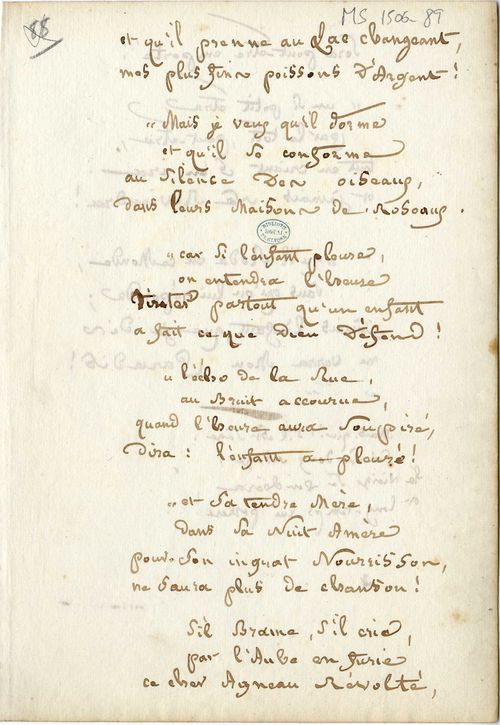 88
MS 1506-89
et qu'il prenne au Lac changeant,
mes plus fins poissons D'Argent !
" Mais je veux qu'il dorme
et qu'il se conforme
au silence Des oiseaux,
dans leurs Maisons de Roseaux.
" car si l'enfant pleure,
on entendra l'heure
Tinter partout qu'un enfant
a fait ce que Dieu Défend !
" l'écho de la Rue,
au Bruit accourue,
quand l'heure aura soupiré,
Dira : l'enfant a pleuré !
" et sa tendre Mère,
dans sa Nuit Amère
pour son ingrat Nourrisson,
ne saura plus de chanson !
S'il Brame, s'il crie,
par l'Aube en furie
ce cher Agneau Révolté,